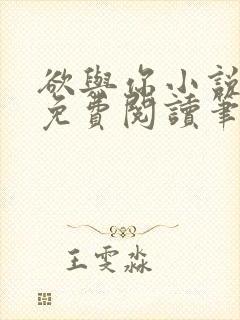 欲與你小說
免費閱讀筆
王雯淼